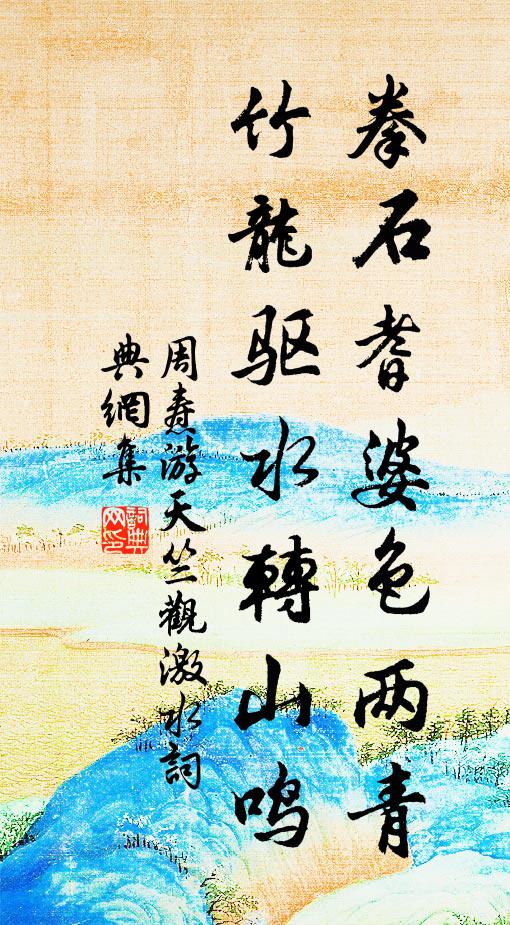 拳石耆婆色两青
竹龍驱水轉山鸣
周焘游天竺觀激水詞
典網集
詞典
网印